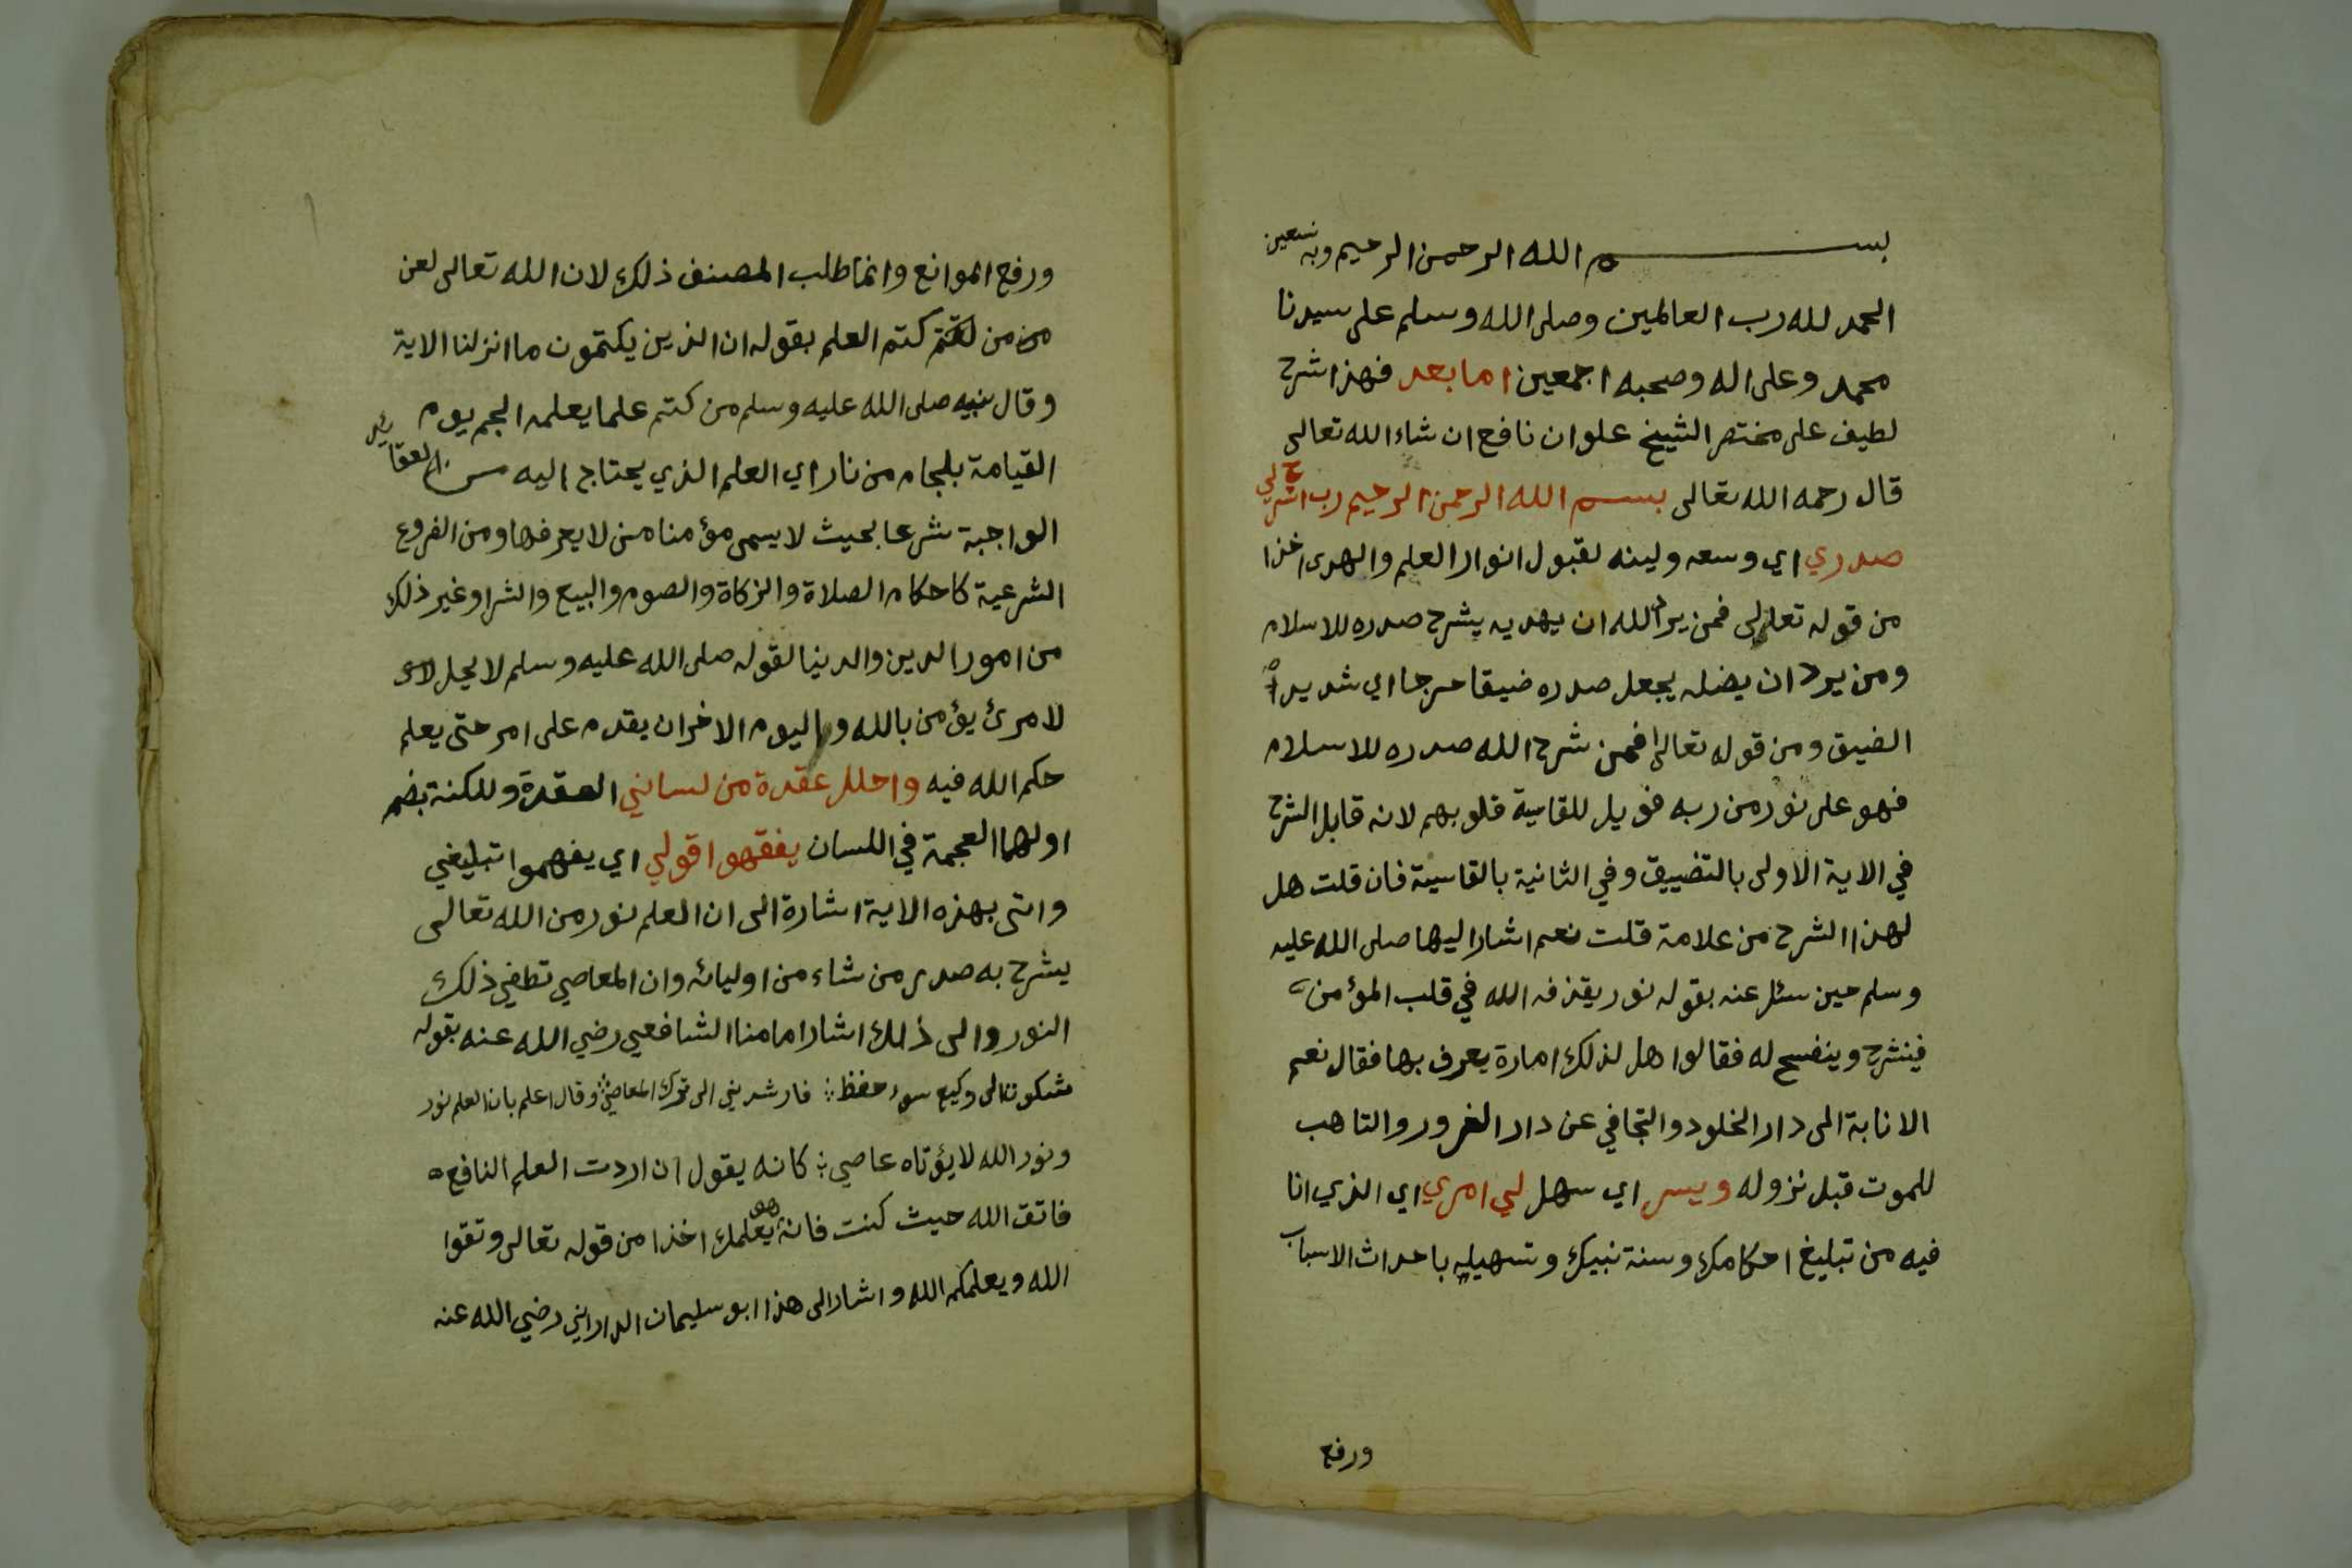 بسم الله الرحمن الرحيم وبه نستعين
الحمد لله رب العالمين وصلى الله وسلم على سيدنا
محمد وعلى اله وصحبه اجمعين اما بعد فهذا شرح
لطيف على مختصر الشيخ علوان نافع ان شاء الله تعالى
قال رحمه الله تعالى بسم الله الرحمن الرحيم رب اشرح لي
صدري اي وسعه ولينه لقبول انوار العلم والهدى اخذا
من قوله تعالى فمن يرد الله ان يهديه يشرح صدره للاسلام
ومن يرد ان يضله يجعل صدره ضيقا حرجا اي شديد
الضيق ومن قوله تعالى افمن شرح الله صدره للاسلام
فهو على نور من ربه فويل للقاسية قلوبهم لانه قابل الشرح
في الاية الاولى بالتضييق وفي الثانية بالقاسية فان قلت هل
لهذا الشرح من علامة قلت نعم اشار اليها صلى الله عليه
وسلم حين سئل عنه بقوله نور يقذفه الله في قلب المؤمن
فينشرح وينفسح له فقالوا هل لذلك امارة يعرف بها فقال نعم
الانابة الى دار الخلود والتجافي عن دار الغرور والتاهب
للموت قبل نزوله ويسر اي سهل لي امري اي الذي انا
فيه من تبليغ احكامك وسنة نبيك وتسهيله باحداث الاسباب
ورفع
ورفع الموانع وانما طلب المصنف ذلك لان الله تعالى لعن
من من كتم العلم بقوله ان الذين يكتمون ما انزلنا الاية
وقال نبيه صلى الله عليه وسلم من كتم علما يعلمه الجم يوم
القيامة بلجام من نار اي العلم الذي يحتاج اليه من العقائد
الواجبة شرعا بحيث لا يسمى مؤمنا من لا يعرفها ومن الفروع
الشرعية كاحكام الصلاة والزكاة والصوم والبيع والشرا وغير ذلك
من امور الدين والدنيا لقوله صلى الله عليه وسلم لا يحل
لامرئ يؤمن بالله واليوم الاخر ان يقدم على امر حتى يعلم
حكم الله فيه واحلل عقدة من لساني العقدة وللكنة بضم
اولهما العجمة في اللسان يفقهوا قولي اي يفهموا تبليغي
واتى بهذه الاية اشارة الى ان العلم نور من الله تعالى
يشرح به صدر من شاء من اوليائه وان المعاصي تطفي ذلك
النور والى ذلك اشار امامنا الشافعي رضي الله عنه بقوله
شكوت الى وكيع سوء حفظ فارشدني الى ترك المعاصي وقال اعلم بان العلم نور
ونور الله لا يؤتاه عاصي كانه يقول ان اردت العلم النافع
فاتق الله حيث كنت فانه هو يعلمك اخذا من قوله تعالى وتقوا
الله ويعلمكم الله واشار الى هذا ابو سليمان الداراني رضي الله عنه